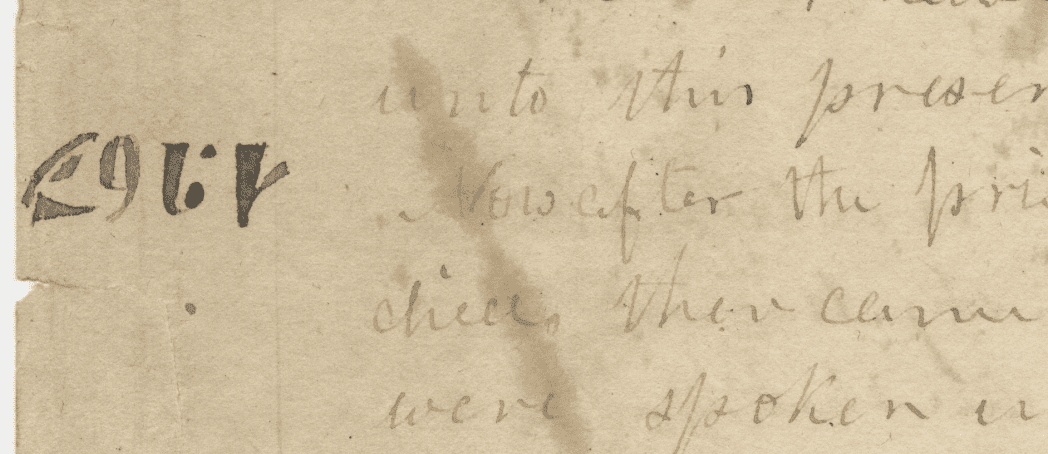 unto this presen
Now after the pri
died, ther came
were spoken